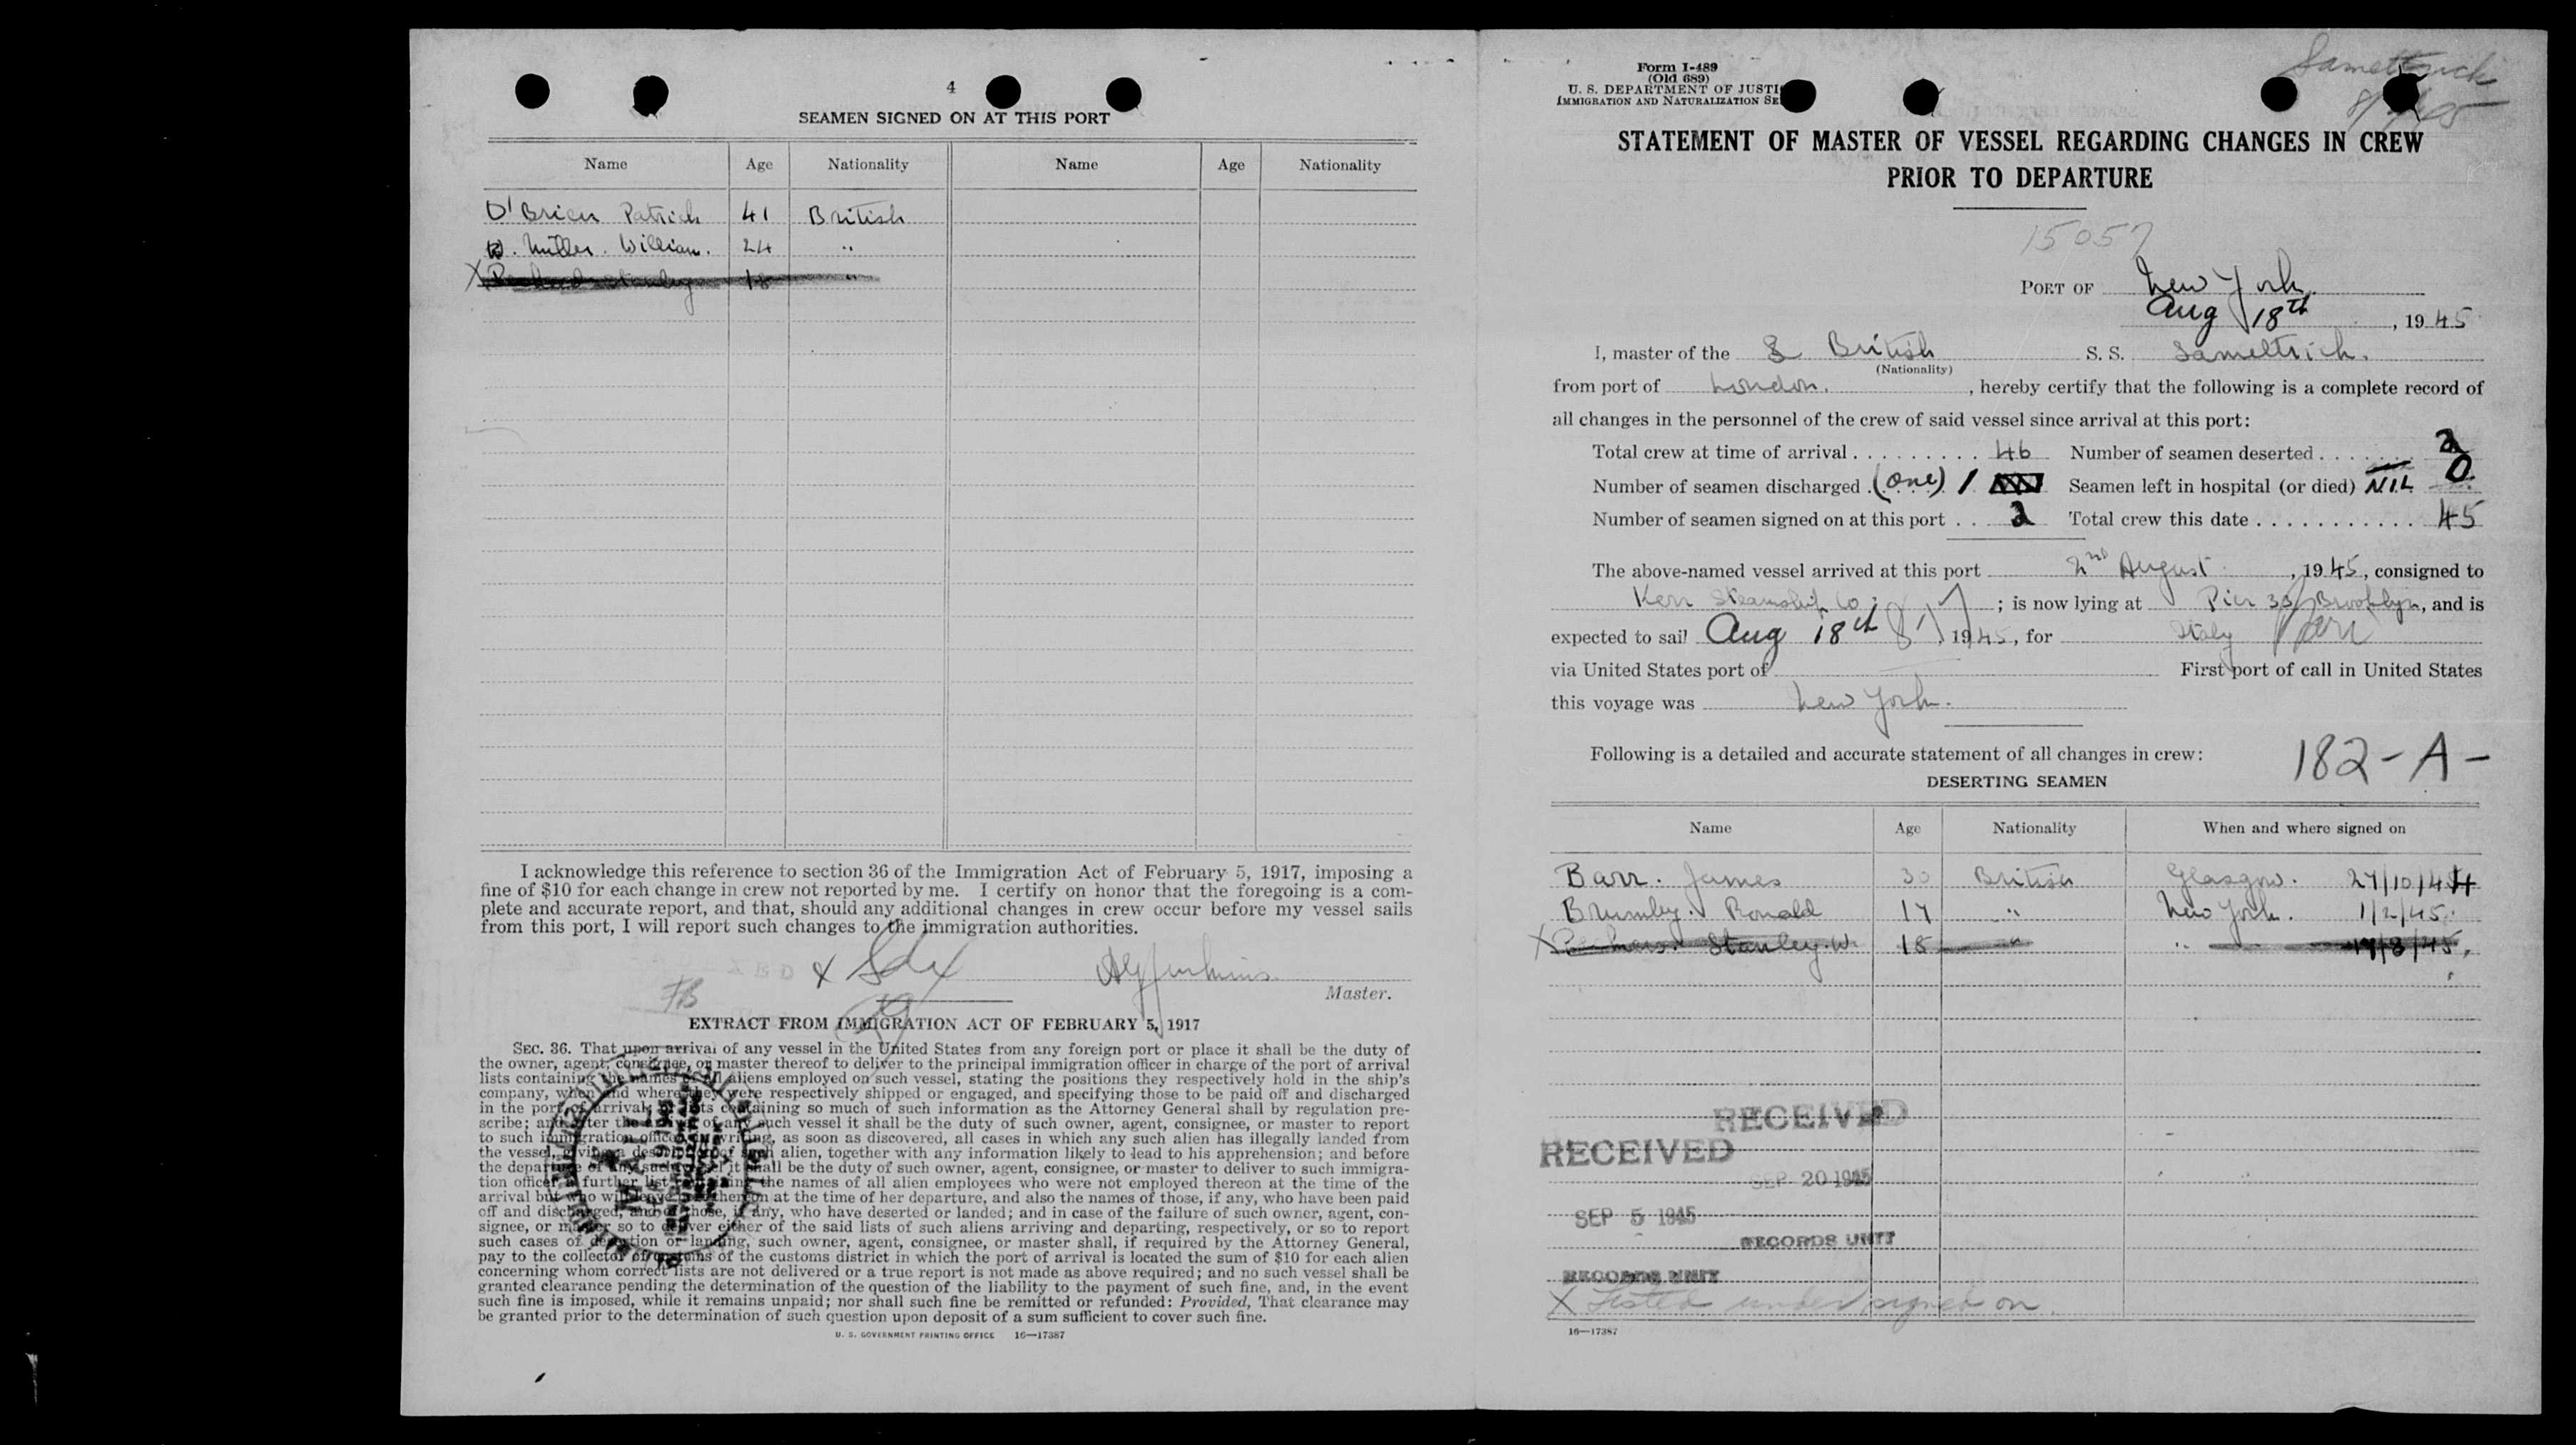 4
SEAMEN SIGNED ON AT THIS PORT
Name Age Nationality Name Age Nationality
O'Brien Patrick 41 British
W. Miller. William. 24 "
X Stanley 18 "
I acknowledge this reference to section 36 of the Immigration Act of February 5, 1917, imposing a
fine of $10 for each change in crew not reported by me. I certify on honor that the foregoing is a com-
plete and accurate report, and that, should any additional changes in crew occur before my vessel sails
from this port, I will report such changes to the immigration authorities.
X
FB Master.
EXTRACT FROM IMMIGRATION ACT OF FEBRUARY 5, 1917
SEC. 36. That upon arrival of any vessel in the United States from any foreign port or place it shall be the duty of
the owner, agent, consignee, or master thereof to deliver to the principal immigration officer in charge of the port of arrival
lists containing the names of all aliens employed on such vessel, stating the positions they respectively hold in the ship's
company, when and where they were respectively shipped or engaged, and specifying those to be paid off and discharged
in the port of arrival; or lists containing so much of such information as the Attorney General shall by regulation pre-
scribe; and after the arrival of any such vessel it shall be the duty of such owner, agent, consignee, or master to report
to such immigration officer, in writing, as soon as discovered, all cases in which any such alien has illegally landed from
the vessel, giving a description of such alien, together with any information likely to lead to his apprehension; and before
the departure of any such vessel it shall be the duty of such owner, agent, consignee, or master to deliver to such immigra-
tion officer a further list containing the names of all alien employees who were not employed thereon at the time of the
arrival but who will leave port thereon at the time of her departure, and also the names of those, if any, who have been paid
off and discharged, and of those, if any, who have deserted or landed; and in case of the failure of such owner, agent, con-
signee, or master so to deliver either of the said lists of such aliens arriving and departing, respectively, or so to report
such cases of desertion or landing, such owner, agent, consignee, or master shall, if required by the Attorney General,
pay to the collector of customs of the customs district in which the port of arrival is located the sum of $10 for each alien
concerning whom correct lists are not delivered or a true report is not made as above required; and no such vessel shall be
granted clearance pending the determination of the question of the liability to the payment of such fine, and, in the event
such fine is imposed, while it remains unpaid; nor shall such fine be remitted or refunded: Provided, That clearance may
be granted prior to the determination of such question upon deposit of a sum sufficient to cover such fine.
U. S. GOVERNMENT PRINTING OFFICE 16—17387
Form I-489
(Old 689)
U. S. DEPARTMENT OF JUSTI
IMMIGRATION AND NATURALIZATION SE
STATEMENT OF MASTER OF VESSEL REGARDING CHANGES IN CREW
PRIOR TO DEPARTURE
15057
PORT OF New York.
Aug 18th, 1945
I, master of the British S. S. Sameltrich.
(Nationality)
from port of London., hereby certify that the following is a complete record of
all changes in the personnel of the crew of said vessel since arrival at this port:
Total crew at time of arrival 46 Number of seamen deserted 2
Number of seamen discharged (one) 1 Seamen left in hospital (or died) NIL 0
Number of seamen signed on at this port 2 Total crew this date 45
The above-named vessel arrived at this port 2nd August, 1945, consigned to
Kerr Steamship Co; is now lying at Pier 33 Brooklyn, and is
expected to sail Aug 18th 1945, for Italy
via United States port of First port of call in United States
this voyage was New York.
Following is a detailed and accurate statement of all changes in crew:
182-A-
DESERTING SEAMEN
Name Age Nationality When and where signed on
Barr. James 30 British Glasgow. 27/10/44
Brumby. Ronald 17 " New York. 1/2/45.
X Stanley.W. 18 " " 17/8/45.
RECEIVED
RECEIVED
SEP 20 1945
SEP 5 1945
RECORDS UNIT
RECORDS UNIT
X Listed under signed on.
16—17387